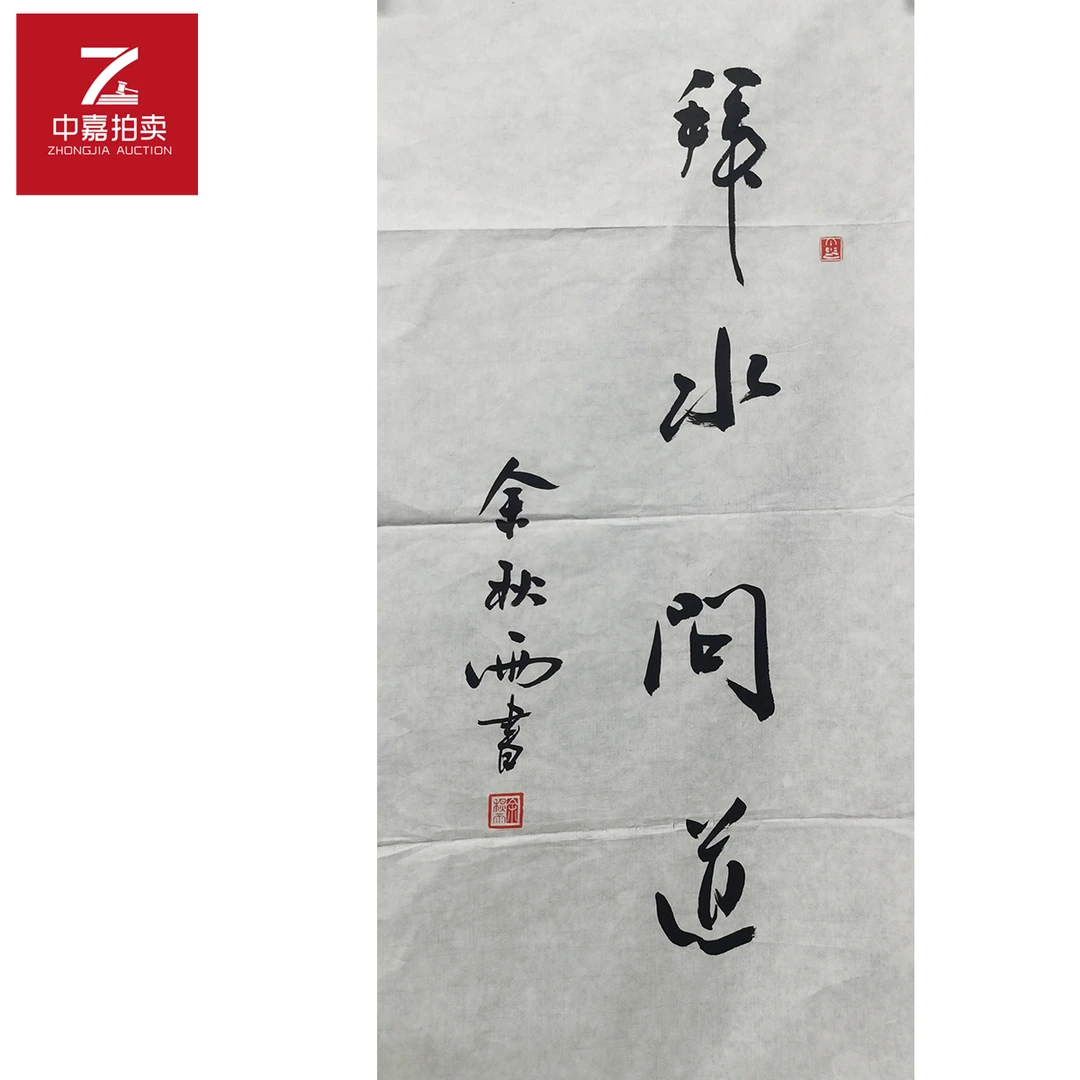 中嘉拍卖
ZHONGJIA AUCTION
拜水问道
余秋雨书